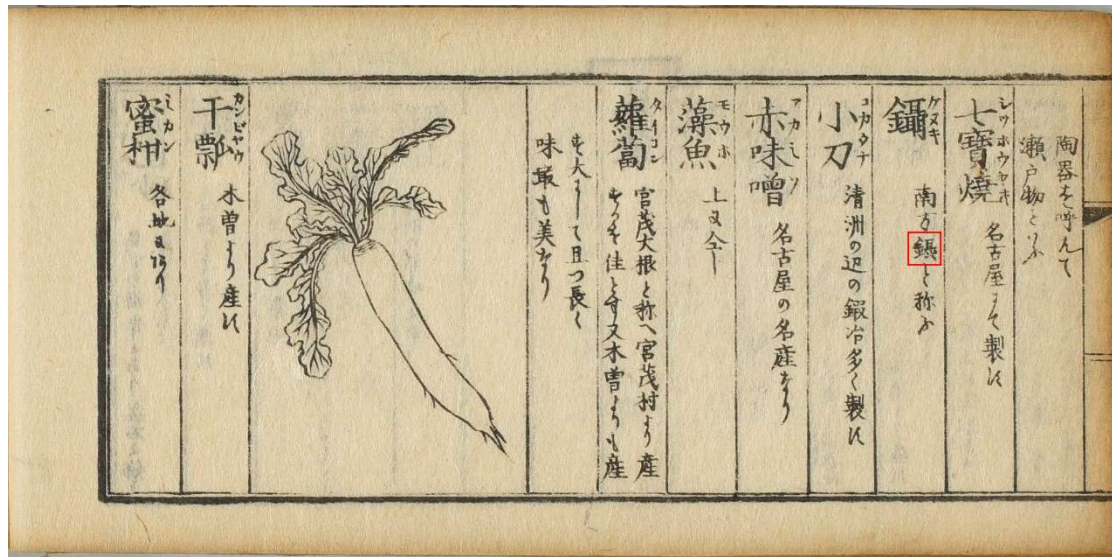 陶器を呼んて
瀬戸物といふ
七寳焼 シツホウヤキ 名古屋にて製は
鑷 ケヌキ 南方鑷と称ふ
小刀 コカタナ 清洲の辺の鍛冶多く製は
赤味噌 アカミソ 名古屋の名産なり
藻魚 モウホ 上に仝し
蘿蔔 タイコン 宮茂大根と称へ宮茂村より産
するを佳とす又木曽よりも産
す大にして且つ長く
味最も美なり
干瓢 カンピヤウ 木曽より産は
蜜柑 ミカン 各地にあり